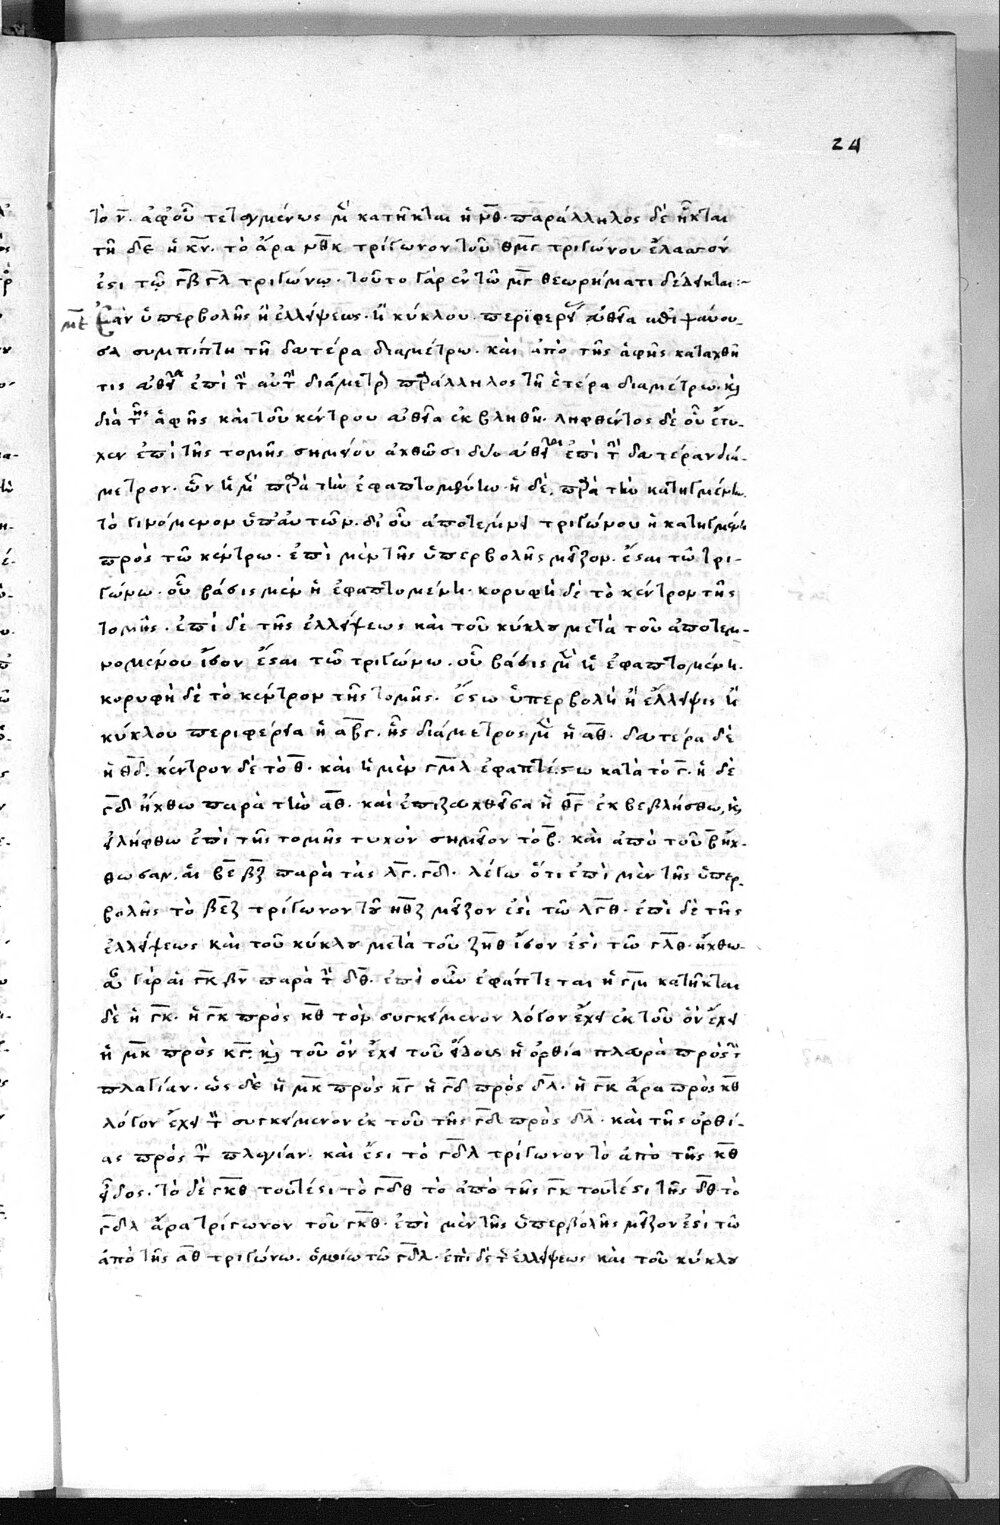 24
τὸ ν̅. ἀφ' οὗ τεταγμένως μ(ὲν) κατῆκται ἡ ν̅θ̅. παράλληλος δὲ ἦκται
τῆ δ̅ε̅ ἡ κ̅ν̅. τὸ ἄρα ν̅θ̅κ̅ τρίγωνον τοῦ θ̅μ̅ς̅ τριγώνου ἔλασσόν
ἐστι τῶ γ̅β̅ γ̅λ̅ τριγώνω. τοῦτο γὰρ ἐν τῶ μ̅γ̅ θεωρήματι δέδεικται:~
μ̅ε̅ Ἐὰν ὑπερβολῆς ἢ ἐλλείψεως. ἢ κύκλου περιφερείας εὐθεῖα ἐπιψαύου-
σα συμπίπτη τῆ δευτέρα διαμέτρω. καὶ ἀπὸ τῆς ἁφῆς καταχθῆ
τις εὐθεῖα ἐπὶ τ(ὴν) αὐτ(ὴν) διάμετρ(ον) παράλληλος τῆ ἑτέρα διαμέτρω. κ(αὶ)
διὰ τῆς ἁφῆς καὶ τοῦ κέντρου εὐθεῖα ἐκβληθῆ. ληφθέντος δὲ οὗ ἔτυ-
χεν ἐπὶ τῆς τομῆς σημείου ἀχθῶσι δύο εὐθεῖαι ἐπὶ τ(ὴν) δευτέραν διά-
μετρον. ὧν ἡ μ(ὲν) παρὰ τὴν ἐφαπτομένην. ἡ δὲ, παρὰ τὴν κατηγμένην.
τὸ γινόμενον ὑπ' αὐτῶν. δι' οὗ ἀποτέμνει τριγώνου ἡ κατηγμένη
πρὸς τῶ κέντρω. ἐπὶ μὲν τῆς ὑπερβολῆς μεῖζον. ἔσται τῶ τρι-
γώνω. οὗ βάσις μὲν ἡ ἐφαπτομένη. κορυφὴ δὲ τὸ κέντρον τῆς
τομῆς. ἐπὶ δὲ τῆς ἐλλείψεως καὶ τοῦ κύκλου μετὰ τοῦ ἀποτεμ-
νομένου ἴσον ἔσται τῶ τριγώνω. οὗ βάσις μ(ὲν) ἡ ἐφαπτομένη.
κορυφὴ δὲ τὸ κέντρον τῆς τομῆς. ἔστω ὑπερβολὴ ἢ ἔλλειψις ἢ
κύκλου περιφέρεια ἡ α̅β̅γ̅. ἧς διάμετρος μ(ὲν) ἡ α̅θ̅. δευτέρα δὲ
ἡ θ̅δ̅. κέντρον δὲ τὸ θ̅. καὶ ἡ μὲν γ̅μ̅λ̅ ἐφαπτέστω κατὰ τὸ γ̅. ἡ δὲ
γ̅δ̅ ἤχθω παρὰ τὴν α̅θ̅. καὶ ἐπιζευχθεῖσα ἡ θ̅γ̅ ἐκβεβλήσθω, κ(αὶ)
εἰλήφθω ἐπὶ τῆς τομῆς τυχὸν σημεῖον τὸ β̅. καὶ ἀπὸ τοῦ β̅ ἤχ-
θωσαν. αἱ β̅ε̅ β̅ζ̅ παρὰ τὰς λ̅γ̅. γ̅δ̅. λέγω ὅτι ἐπὶ μὲν τῆς ὑπερ-
βολῆς τὸ β̅ε̅ζ̅ τρίγωνον τοῦ η̅θ̅ζ̅ μεῖζον ἐστὶ τῶ λ̅γ̅θ̅. ἐπὶ δὲ τῆς
ἐλλείψεως καὶ τοῦ κύκλου μετὰ τοῦ ζ̅η̅θ̅ ἴσον ἐστὶ τῶ γ̅λ̅θ̅. ἤχθω-
σαν γὰρ αἱ γ̅κ̅ β̅ν̅ παρὰ τ(ὴν) δ̅θ̅. ἐπεὶ οὖν ἐφάπτεται ἡ γ̅μ̅ κατῆκται
δὲ ἡ γ̅κ̅. ἡ γ̅κ̅ πρὸς κ̅θ̅ τὸν συγκείμενον λόγον ἔχει ἐκ τοῦ ὃν ἔχει
ἡ μ̅κ̅ πρὸς κ̅γ̅. κ(αὶ) τοῦ ὃν ἔχει τοῦ εἴδους ἡ ὀρθία πλευρὰ πρὸς τ(ὴν)
πλαγίαν. ὡς δὲ ἡ μ̅κ̅ πρὸς κ̅γ̅ ἡ γ̅δ̅ πρὸς δ̅λ̅. ἡ γ̅κ̅ ἄρα πρὸς κ̅θ̅
λόγον ἔχει τ(ὸν) συγκείμενον ἐκ τοῦ τῆς γ̅δ̅ πρὸς δ̅λ̅. καὶ τῆς ὀρθί-
ας πρὸς τ(ὴν) πλαγίαν. καὶ ἔστι τὸ γ̅δ̅λ̅ τρίγωνον τὸ ἀπὸ τῆς κ̅θ̅
εἶδος. τὸ δὲ γ̅κ̅θ̅ τουτέστι τὸ γ̅δ̅θ̅ τὸ ἀπὸ τῆς γ̅κ̅ τουτέστι τῆς δ̅θ̅. τὸ
γ̅δ̅λ̅ ἄρα τρίγωνον τοῦ γ̅κ̅θ̅. ἐπὶ μὲν τῆς ὑπερβολῆς μεῖζον ἐστὶ τῶ
ἀπὸ τῆς α̅θ̅ τριγώνω. ὁμοίω τῶ γ̅δ̅λ̅. ἐπὶ δὲ τ(ῆς) ἐλλείψεως καὶ τοῦ κύκλου